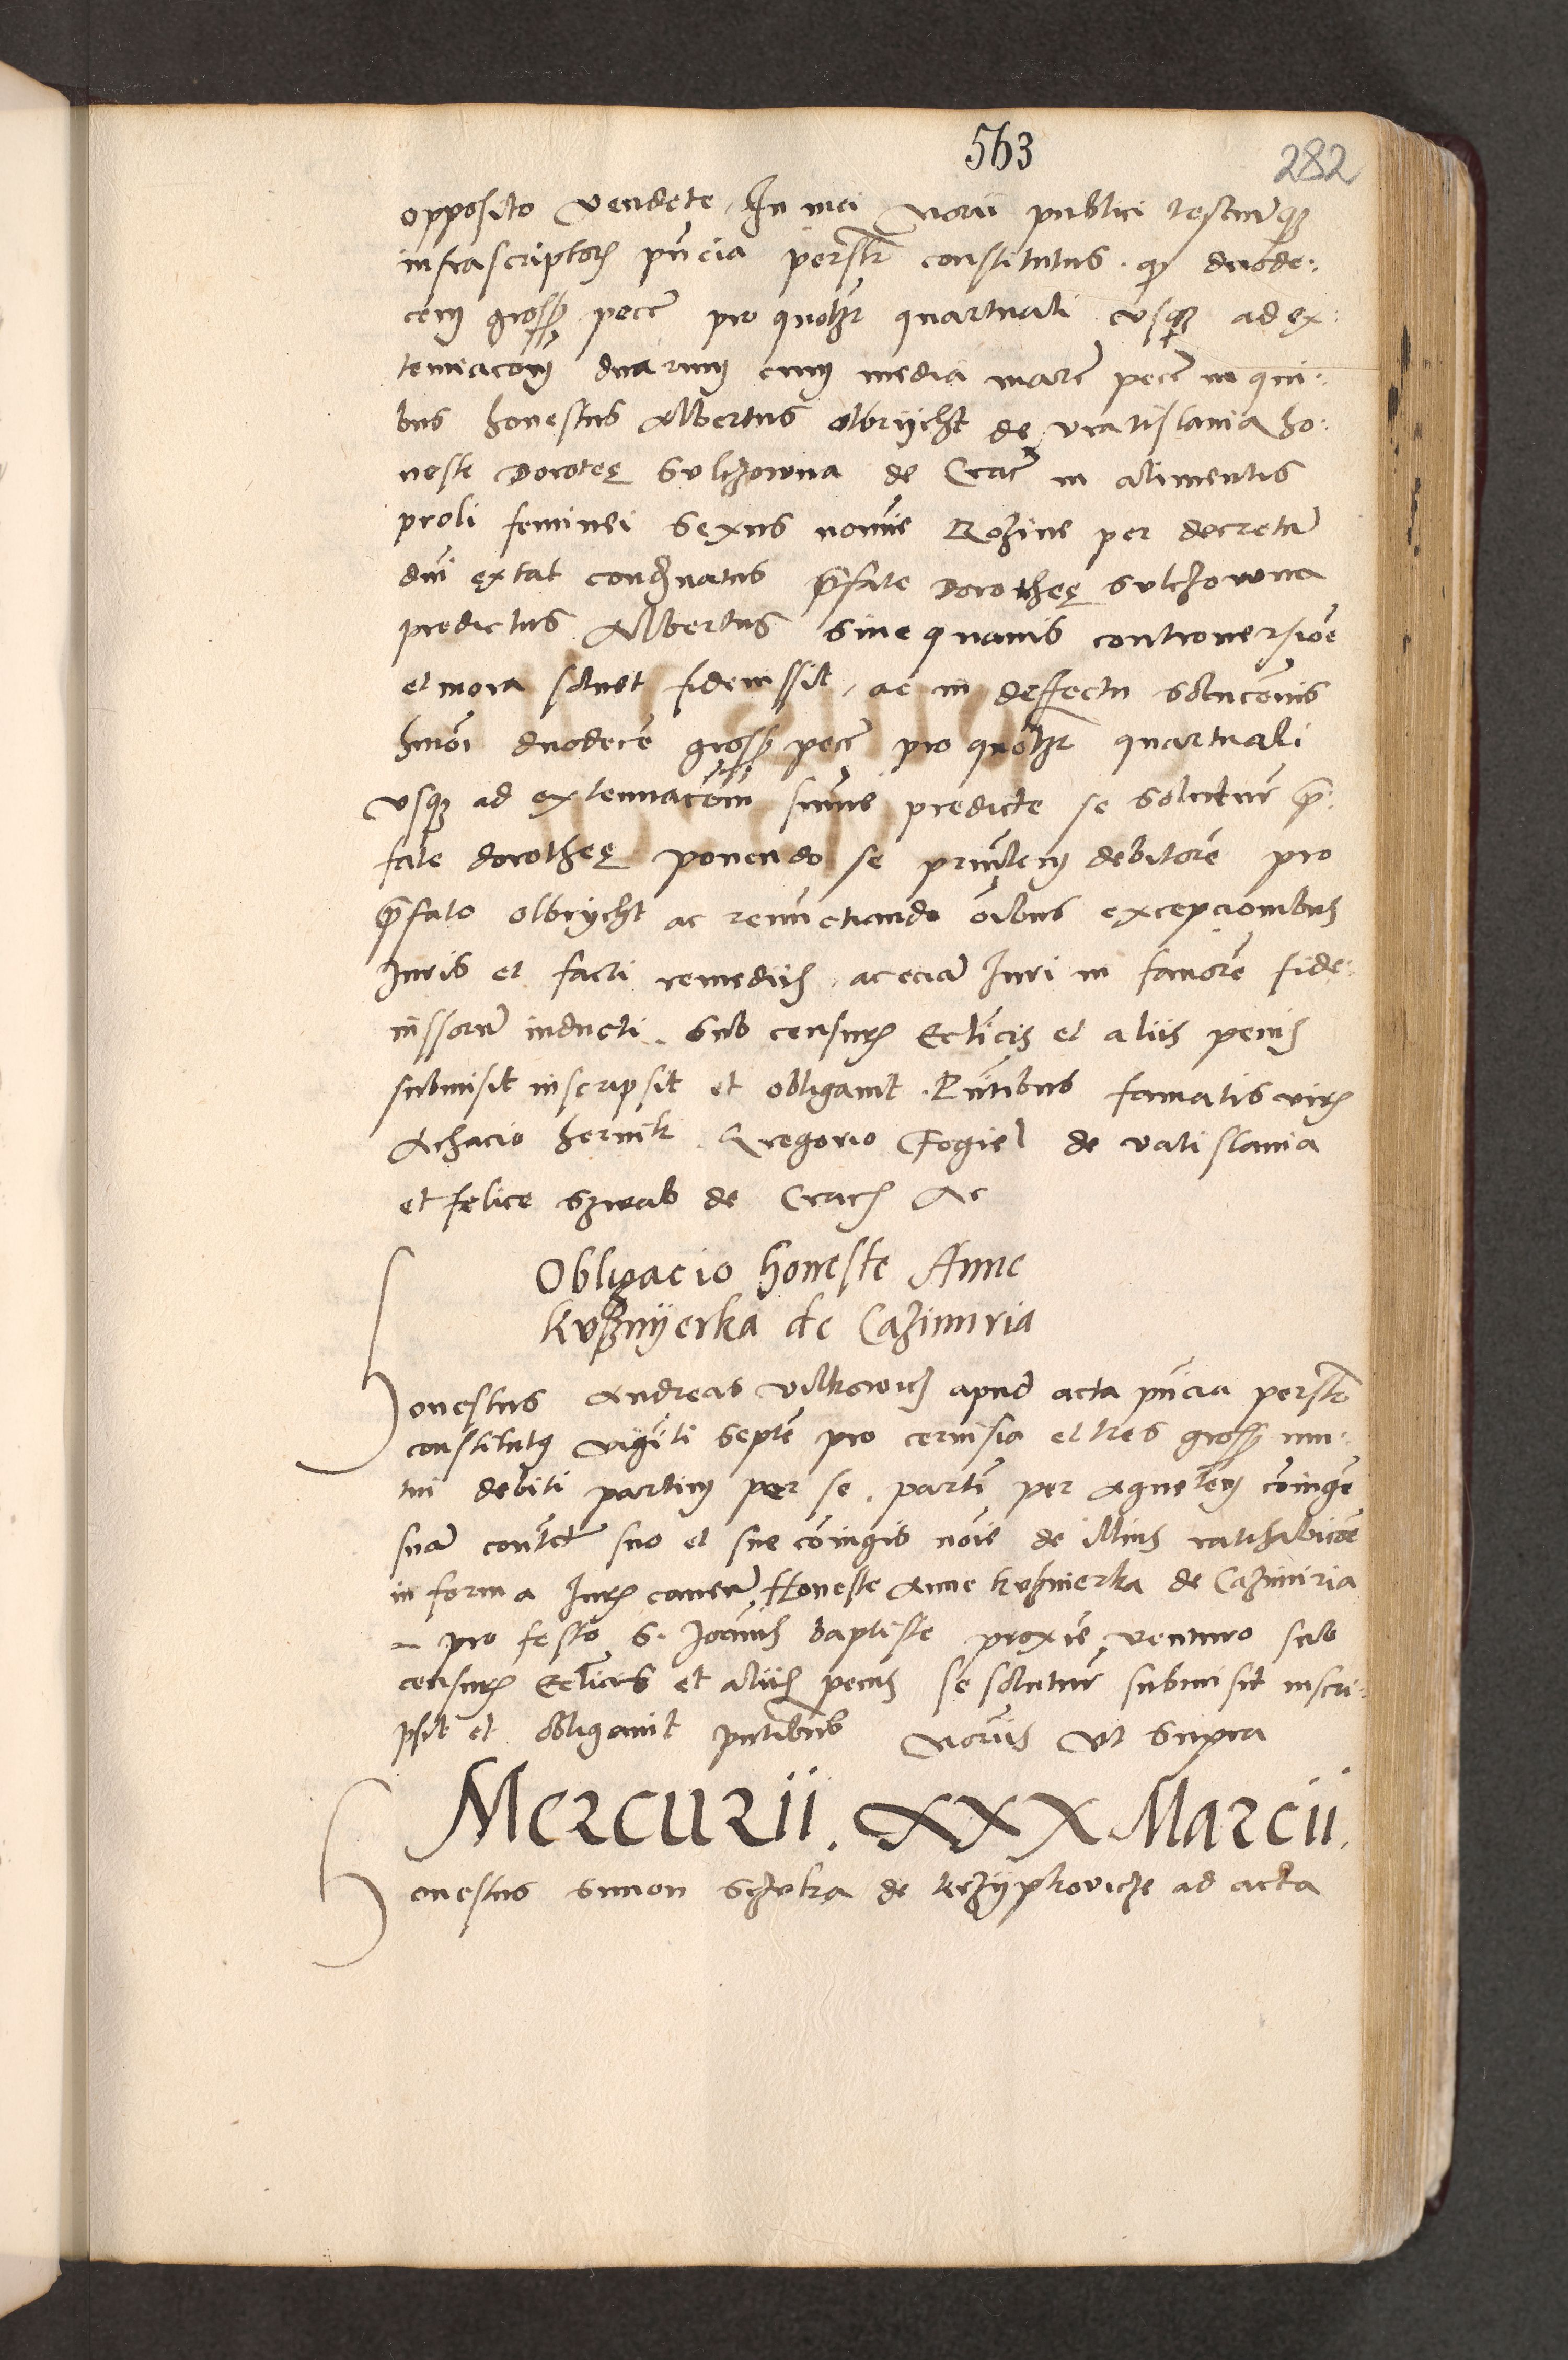 563
282
opposito vendete, In mei notarii publici testiumq3
infrascriptorum pntia personaliter constitutus. q duode:
cem gross pece pro quolibet quartuali usq3 ad ex:
tenuacionem duarum cum media marc pece in qui:
bus honestus Albertus olbrycht de vratislauia ho:
neste Dorotee Sulchowna de Crac in alimentis
proli feminei sexus nomine Rozine per decretum
dni extat condemnatus prefate Dorothee Sulchowna
predictus Albertus sine quauis controuersione
et mora soluet fideiussit, ac in deffectu solucionis
hmoi duodecem gross pece pro quolibet quartuali
usq3 ad extenuacionem summe predicte se soluturum pre:
fate dorothee ponendo se principalem debitorem pro
prefato olbrycht ac renunctiando omnibus excepcionibus
Juris et facti remediis, ac eciam Juri in fauorem fide:
iussorum inducti. Sub censuris Ecclesiasticis et aliis penis
submisit inscripsit et obligauit. Pntibus famatis viris
Achacio hernik Gregorio Fogiel de vatislauia
et felice szwab de Crac Ac
Obligacio honeste Anne
kusznyerka de Cazimiria
Honestus Andreas vilkowicz apud acta pntia personaliter
constitutus viginti septem pro ceruisia et tres gross mu:
tui debiti partim per se, partim per Agnetem coniugem
suam contractum suo et sue coniugis noie de illius ratihabicione
in forma Juris cauens Honeste Anne kusznierka de Cazimiria
pro festo S. Joannis baptiste proxime venturo sub
censuris Ecclesiasticis et aliis penis se soluturum submisit inscri:
psit et obligauit pntibus Notariis Ut supra
Mercurii. XXX Marcii.
Honestus Simon Schetka de krzypkovicze ad acta